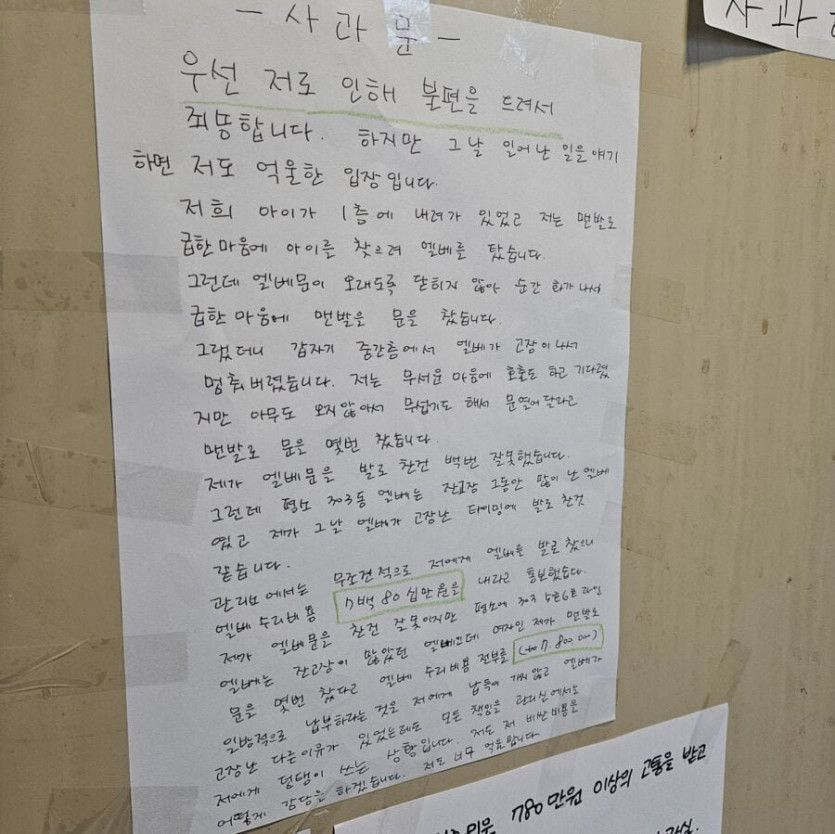 - 사과문 -
우선 저로 인해 불편을 드려서
죄송합니다. 하지만 그날 일어난 일을 얘기
하면 저도 억울한 입장입니다.
저희 아이가 1층에 내려가 있었고 저는 맨발로
급한마음에 아이를 찾으려 엘베를 탔습니다.
그런데 엘베문이 오래도록 닫히지 않아 순간 화가나서
급한마음에 맨발을 문을 찼습니다.
그랬더니 갑자기 중간층에서 엘베가 고장이나서
멈춰버렸습니다. 저는 무서운 마음에 호출도 하고 기다렸
지만 아무도 오지않아서 무섭기도 해서 문열어달라고
맨발로 문을 몇번 찼습니다.
제가 엘베문을 발로 찬건 백번 잘못했습니다.
그런데 평소 303동 엘베는 잔고장 그동안 많이 난 엘베
였고 제가 그날 엘베가 고장난 타이밍에 발로 찬것
같습니다.
관리소에서는 무조건적으로 저에게 엘베를 발로 찼으니
엘베 수리비용 7백 80 십만원을 내라고 통보했습니다.
제가 엘베문을 찬건 잘못이지만 평소에 303 5호6호라인
엘베는 잔고장이 많았던 엘베인데 여자인 제가 맨발로
문을 몇번 찼다고 엘베 수리비용 전부를 (7.800.000)
일방적으로 납부하라는 것은 저에게 납득이 가지 않고 엘베가
고장난 다른이유가 있었는데도 모든 책임을 관리실에서는
저에게 덤탱이 쓰는 상황입니다. 저도 저 비싼비용을
어떻게 감당을 하겠습니다. 저도 너무 억울합니다
사과
780만원 이상의 고통을 받고